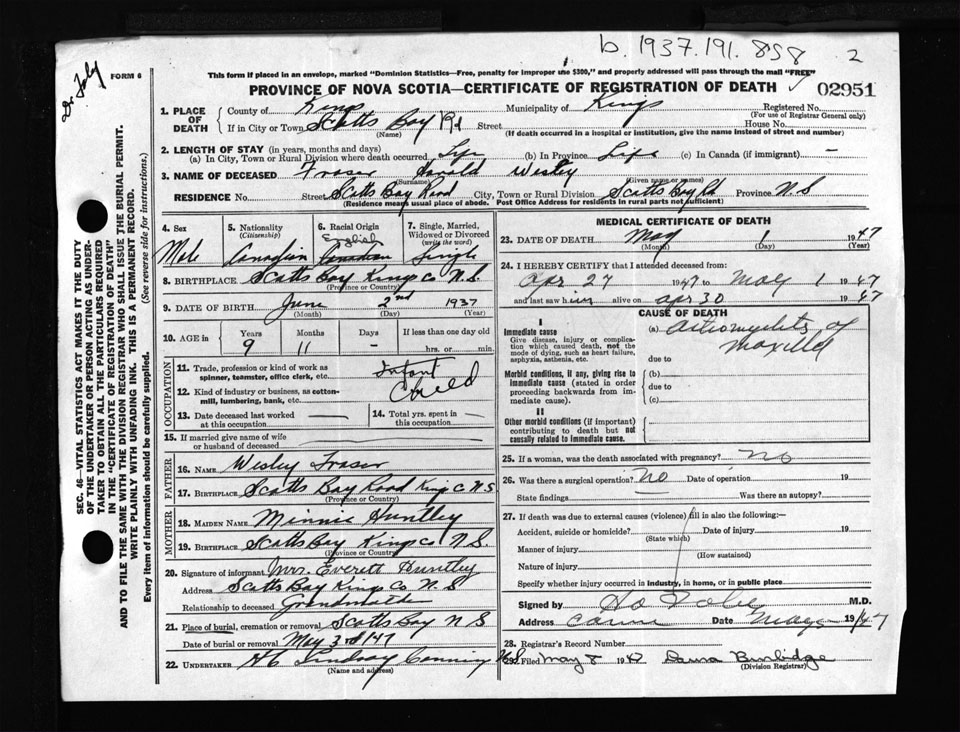 b. 1937.191.858 2
Dr Foley
FORM 6
This form if placed in an envelope, marked "Dominion Statistics—Free, penalty for improper use $300," and properly addressed will pass through the mail "FREE"
PROVINCE OF NOVA SCOTIA—CERTIFICATE OF REGISTRATION OF DEATH
02951
SEC. 46—VITAL STATISTICS ACT MAKES IT THE DUTY
OF THE UNDERTAKER OR PERSON ACTING AS UNDER-
TAKER TO OBTAIN ALL THE PARTICULARS REQUIRED
IN THE "CERTIFICATE OF REGISTRATION OF DEATH"
AND TO FILE THE SAME WITH THE DIVISION REGISTRAR WHO SHALL ISSUE THE BURIAL PERMIT.
WRITE PLAINLY WITH UNFADING INK. THIS IS A PERMANENT RECORD.
Every item of information should be carefully supplied. (See reverse side for instructions.)
1. PLACE OF DEATH
County of Kings Municipality of Kings Registered No.
(For use of Registrar General only)
If in City or Town Scotts Bay Rd Street House No.
(Name) (If death occurred in a hospital or institution, give the name instead of street and number)
2. LENGTH OF STAY (in years, months and days)
(a) In City, Town or Rural Division where death occurred Life (b) In Province Life (c) In Canada (if immigrant) —
3. NAME OF DECEASED Fraser Harold Wesley
(Surname) (Given name or names)
RESIDENCE No. Street Scotts Bay Road City, Town or Rural Division Scotts Bay Rd Province N.S
(Residence means usual place of abode. Post Office Address for residents in rural parts not sufficient)
4. Sex 5. Nationality (Citizenship) 6. Racial Origin 7. Single, Married, Widowed or Divorced (write the word)
Male Canadian English Canadian Single
8. BIRTHPLACE Scotts Bay Kings Co N.S
(Province or Country)
9. DATE OF BIRTH June 2nd 1937
(Month) (Day) (Year)
10. AGE Years Months Days If less than one day old
9 11 - hrs. or min.
OCCUPATION
11. Trade, profession or kind of work as spinner, teamster, office clerk, etc. Infant
12. Kind of industry or business, as cotton-mill, lumbering, bank, etc. Child
13. Date deceased last worked at this occupation —
14. Total yrs. spent in this occupation —
15. If married give name of wife or husband of deceased
FATHER
16. NAME Wesley Fraser
17. BIRTHPLACE Scotts Bay Road Kings C N.S
(Province or Country)
MOTHER
18. MAIDEN NAME Minnie Huntley
19. BIRTHPLACE Scotts Bay Kings Co N.S.
(Province or Country)
20. Signature of informant Mrs. Everett Huntley
Address Scotts Bay Kings Co N.S
Relationship to deceased Grandmother
21. Place of burial, cremation or removal Scotts Bay N S
Date of burial or removal May 3rd/47
22. UNDERTAKER HC Lindsay Canning N.S.
(Name and address)
MEDICAL CERTIFICATE OF DEATH
23. DATE OF DEATH May 1 1947
(Month) (Day) (Year)
24. I HEREBY CERTIFY that I attended deceased from:
Apr 27 1947 to May 1 1947
and last saw him alive on Apr 30 1947
CAUSE OF DEATH
I
Immediate cause
Give disease, injury or complication which caused death, not the mode of dying, such as heart failure, asphyxia, asthenia, etc.
(a) Osteomyelitis of
Maxilla
due to
Morbid conditions, if any, giving rise to immediate cause (stated in order proceeding backwards from immediate cause).
(b)
due to
(c)
II
Other morbid conditions (if important) contributing to death but not causally related to immediate cause.
25. If a woman, was the death associated with pregnancy? No
26. Was there a surgical operation? No Date of operation 19
State findings Was there an autopsy?
27. If death was due to external causes (violence) fill in also the following:—
Accident, suicide or homicide? Date of injury 19
(State which)
Manner of injury
(How sustained)
Nature of injury
Specify whether injury occurred in industry, in home, or in public place
Signed by M.D.
Address Date May 1947
28. Registrar's Record Number
29. Filed May 8 1947 Burbidge
(Division Registrar)